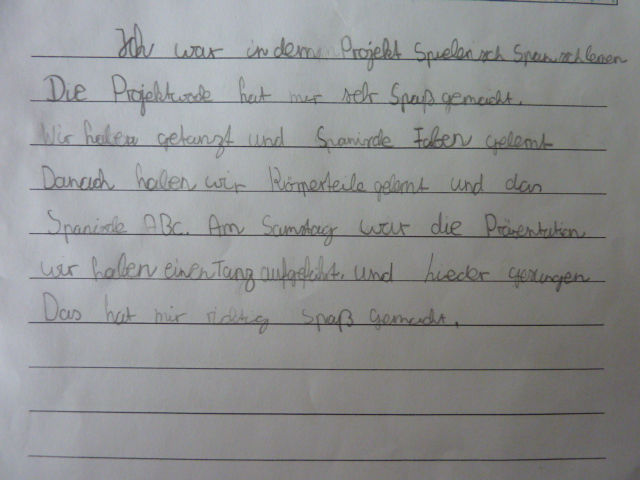 Ich war in dem Projekt Spielerisch Spanisch lernen
Die Projektwoche hat mir sehr Spaß gemacht.
Wir haben getanzt und Spanische Faben gelernt
Danach haben wir Körperteile gelernt und das
Spanische ABC. Am Samstag war die Präsentation
wir haben einen Tanz aufgeführt. und Lieder gesungen
Das hat mir richtig Spaß gemacht.